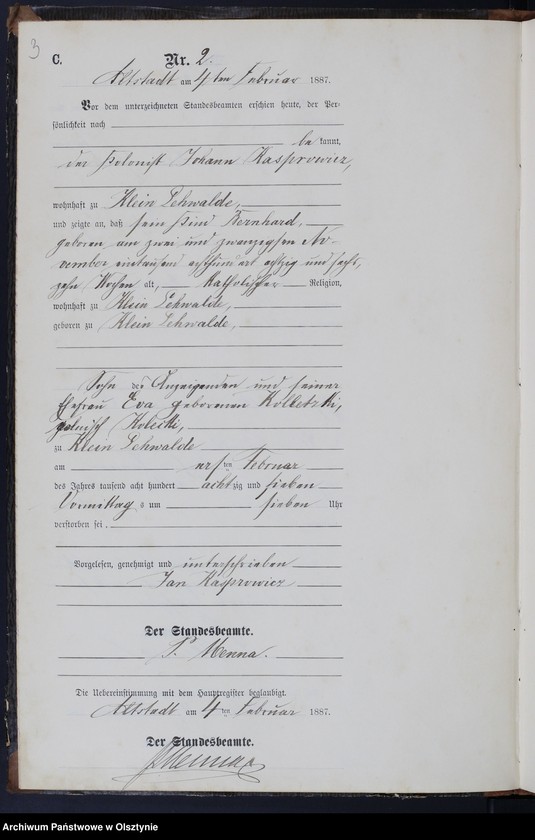 3
C. Nr. 2.
Altstadt am 4ten Februar 1887.
Vor dem unterzeichneten Standesbeamten erschien heute, der Per-
sönlichkeit nach
be kannt,
der Kolonist Johann Kasprowicz,
wohnhaft zu Klein Lehwalde,
und zeigte an, daß sein Kind Bernhard,
geboren am zwei und zwanzigsten No-
vember eintausend achthundert achtzig und sechs,
zehn Wochen alt, katholischer Religion,
wohnhaft zu Klein Lehwalde,
geboren zu Klein Lehwalde,
Sohn des Anzeigenden und seiner
Ehefrau Eva geborenen Kolletzki,
polnisch
zu Klein Lehwalde
am ersten Februar
des Jahres tausend acht hundert achtzig und sieben
Vormittags um sieben Uhr
verstorben sei.
Vorgelesen, genehmigt und unterschrieben
Jan Kasprowicz
Der Standesbeamte.
Menna.
Die Uebereinstimmung mit dem Hauptregister beglaubigt.
Altstadt am 4ten Februar 1887.
Der Standesbeamte.
Menna
Archiwum Państwowe w Olsztynie